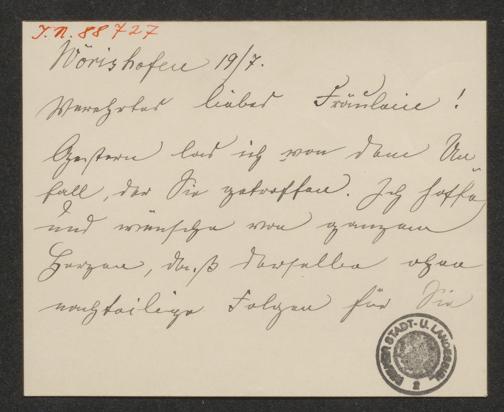 J.N. 88727
Wörishofen 19/7.
Verehrtes liebes Fräulein!
Gestern las ich von dem Un
fall, der Sie getroffen. Ich hoffe
und wünsche von ganzem
Herzen, daß derselbe ohne
nachteilige Folgen für Sie
WIENER STADT- U. LANDESBIBL.